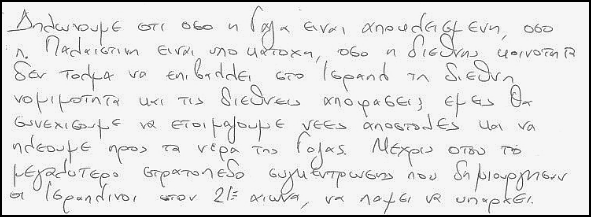 Δηλωνουμε οτι οσο η Γαζα ειναι αποκλεισμενη, οσο
η Παλαιστινη ειναι υπο κατοχη, οσο η διεθνης κοινοτητα
δεν τολμα να επιβαλλει στο Ισραηλ τη διεθνη
νομιμοτητα και τις διεθνεις αποφασεις εμεις θα
συνεχισουμε να ετοιμαζουμε νεες αποστολες και να
πλεουμε προς τα νερα της Γαζας. Μεχρις οτου το
μεγαλυτερο στρατοπεδο συγκεντρωσης που δημιουργησαν
οι Ισραηλινοι στον 21ο αιωνα, να παψει να υπαρχει.